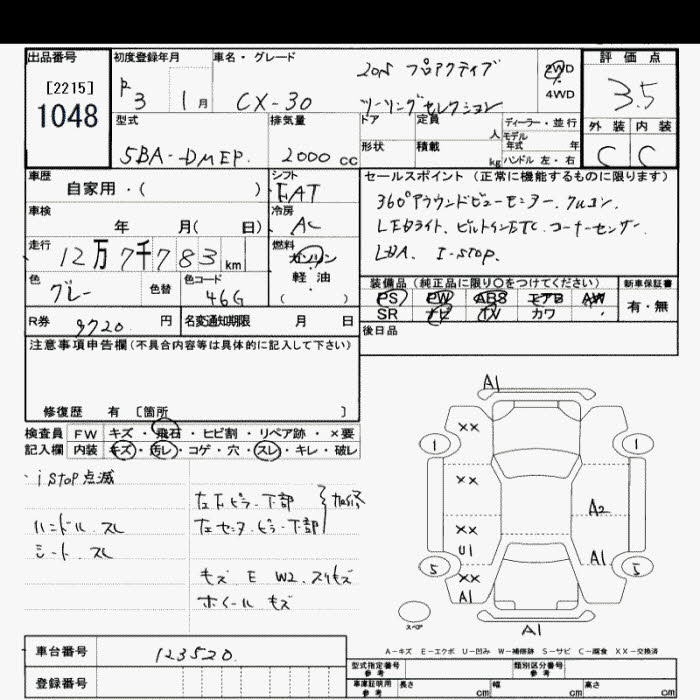 出品番号 初度登録年月 車名・グレード 評価点
[2215]
1048
R3 1月 CX-30
20S プロアクティブ
ツーリングセレクション
2WD
4WD
3.5
型式 排気量 ドア 定員 人 ディーラー・並行 外装 内装
5BA-DMEP. 2000 cc
形状 積載 kg モデル年式 年
ハンドル 左・右
C C
車歴 シフト セールスポイント (正常に機能するものに限ります)
自家用・( ) FAT
360°アラウンドビューモニター. クルコン.
車検 冷房
年 月( 日) AC
LEDライト. ビルトインETC. コーナーセンサー.
走行 燃料
12万7千783 km ガソリン
軽・油
( )
LDA. I-STOP.
色 色替 色コード
グレー 46G
装備品 (純正品に限り○をつけてください) 新車保証書
PS PW ABS エアB AW
SR ナビ TV カワ 有・無
R券 9720 円 名変通知期限 月 日
後日品
注意事項申告欄(不具合内容等は具体的に記入して下さい)
修復歴 有 〔箇所 〕
検査員 FW キズ・飛石・ヒビ割・リペア跡・×要
記入欄 内装 キズ・汚レ・コゲ・穴・スレ・キレ・破レ
・i STOP点滅
左Fピラー下部
左センターピラー下部 } 加修
ハンドル スレ
シート スレ
キズ E W2. スリキズ
ホイール キズ
A1
XX
1 1
XX
A2
XX
U1 A1
5 XX 5
A1
スペア
A1
A-キズ E-エクボ U-凹み W-補修跡 S-サビ C-腐食 XX-交換済
車台番号 123520.
登録番号
型式指定番号 参考 類別区分番号 参考
車庫証明用 参考 長さ cm 幅 cm 高さ cm